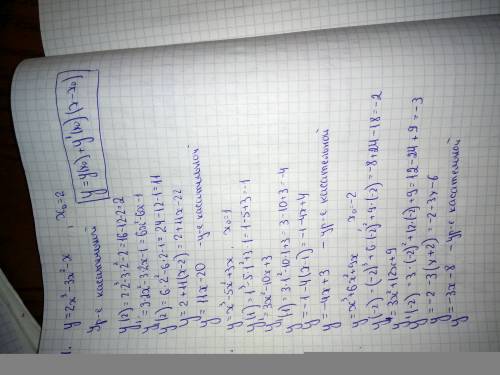 1. y=2x³-3x²-x , x₀=2
Ур-е касательной y=y(x₀)+y'(x₀)(x-x₀)
y(2)=2·2³-3·2²-2=16-12-2=2
y'=3·2x²-3·2x-1=6x²-6x-1
y'(2)=6·2²-6·2-1=24-12-1=11
y=2+11(x-2)=2+11x-22
y=11x-20 -ур-е касательной
y=x³-5x²+3x, x₀=1
y(1)=1³-5·1²+3·1=1-5+3=-1
y'=3x²-10x+3
y'(1)=3·1²-10·1+3=3-10+3=-4
y=-1-4(x-1)=-1-4x+4
y=-4x+3 - ур-е касательной
y=x³+6x²+9x x₀=-2
y(-2)=(-2)³+6·(-2)²+9·(-2)=-8+24-18=-2
y'=3x²+12x+9
y'(-2)=3·(-2)²+12·(-2)+9=12-24+9=-3
y=-2-3(x+2)=-2-3x-6
y=-3x-8 -ур-е касательной